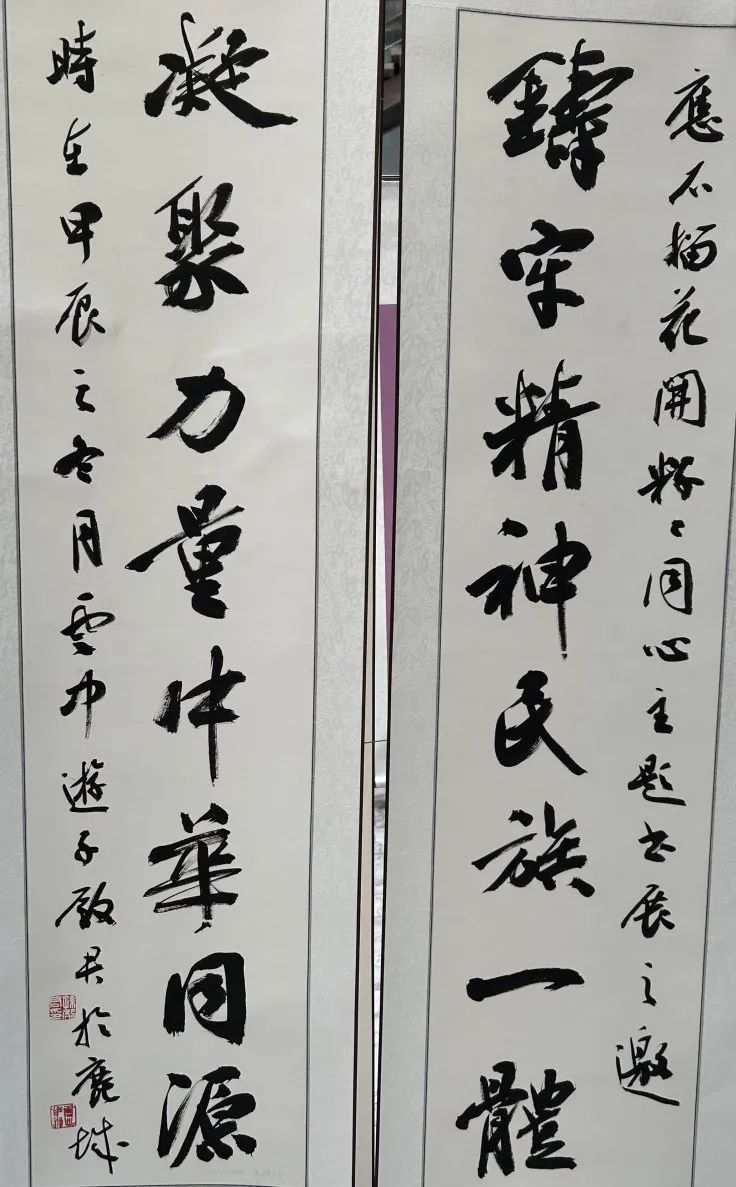 應石榴花開籽籽同心主題書展之邀
鑄牢精神民族一體
凝聚力量中華同源
時在甲辰之冬月雲中遊子啟君於鹿城